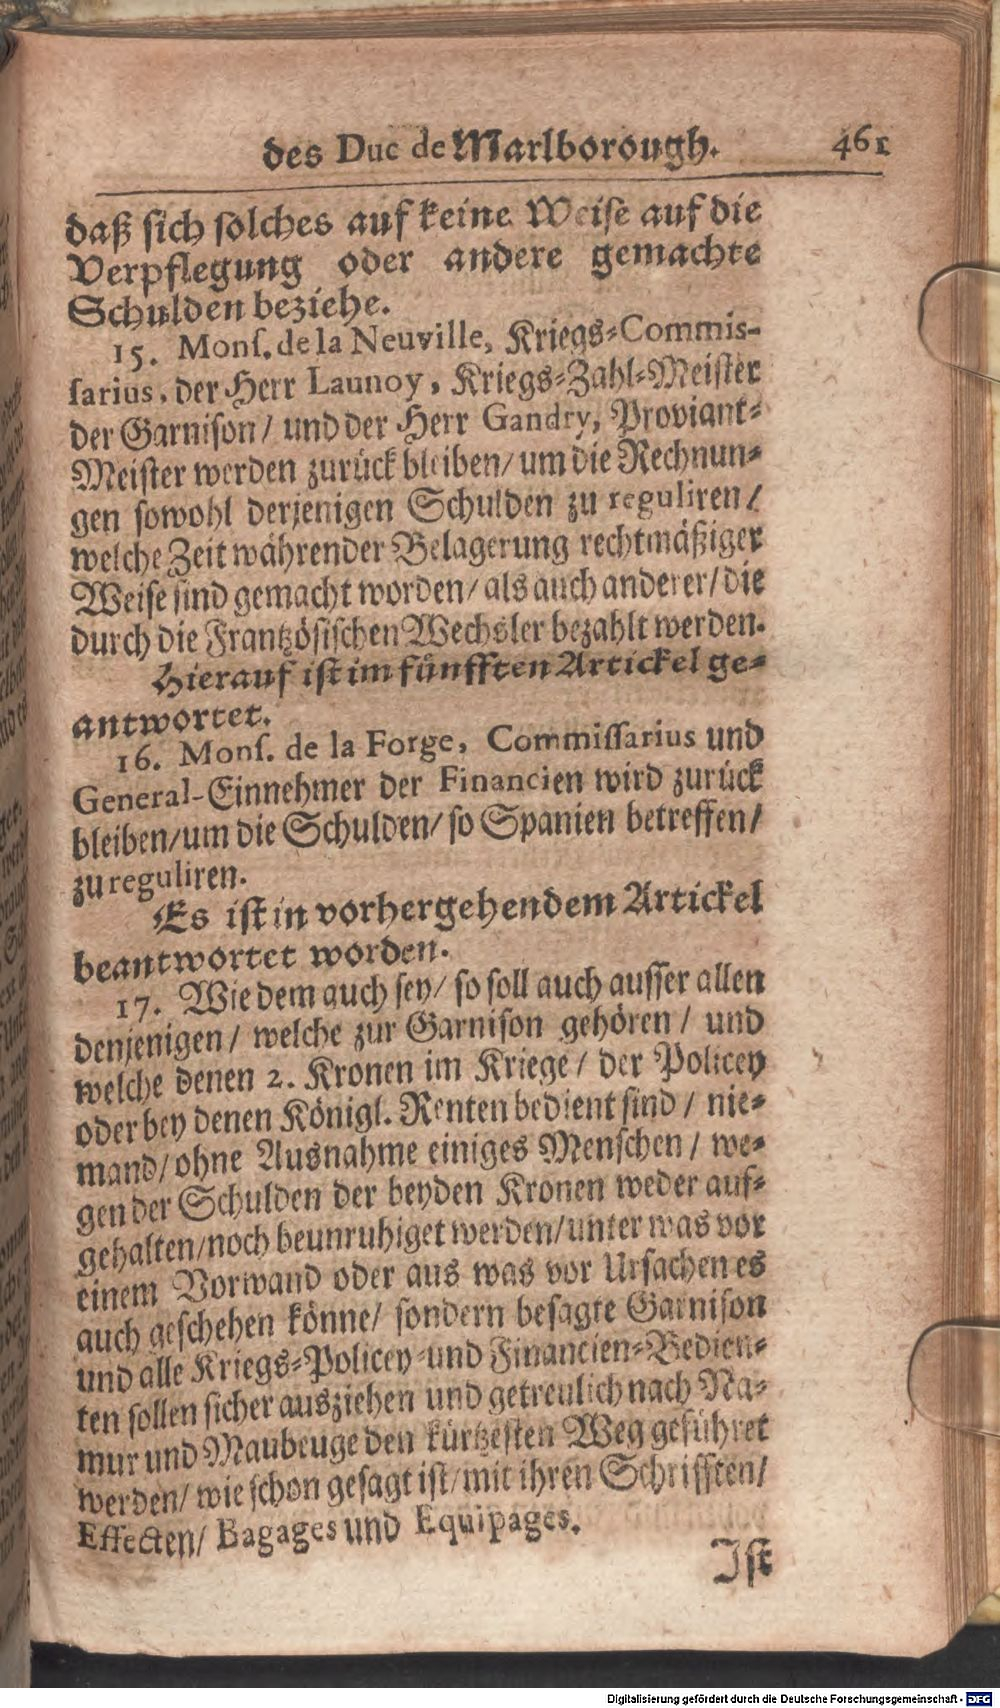 des Duc de Marlborough. 461
daß sich solches auf keine Weise auf die
Verpflegung oder andere gemachte
Schulden beziehe.
15. Mons. de la Neuville, Kriegs-Commis-
sarius, der Herr Launoy, Kriegs-Zahl-Meister
der Garnison/ und der Herr Gandry, Proviant-
Meister werden zurück bleiben/ um die Rechnun-
gen sowohl derjenigen Schulden zu reguliren/
welche Zeit währender Belagerung rechtmäßiger
Weise sind gemacht worden/ als auch anderer/ die
durch die Frantzösischen Wechsler bezahlt werden.
Hierauf ist im fünfften Artickel ge-
antwortet.
16. Mons. de la Forge, Commissarius und
General-Einnehmer der Financien wird zurück
bleiben/ um die Schulden/ so Spanien betreffen/
zu reguliren.
Es ist in vorhergehendem Artickel
beantwortet worden.
17. Wie dem auch sey/ so soll auch ausser allen
denjenigen/ welche zur Garnison gehören/ und
welche denen 2. Kronen im Kriege/ der Policey
oder bey denen Königl. Renten bedient sind/ nie-
mand/ ohne Ausnahme einiges Menschen/ we-
gen der Schulden der beyden Kronen weder auf-
gehalten/ noch beunruhiget werden/ unter was vor
einem Vorwand oder aus was vor Ursachen es
auch geschehen könne/ sondern besagte Garnison
und alle Kriegs-Policey-und Financien-Bedien-
ten sollen sicher ausziehen und getreulich nach Na-
mur und Maubeuge den kürtzesten Weg geführet
werden/ wie schon gesagt ist/ mit ihren Schrifften/
Effecten/ Bagages und Equipages.
Ist
Digitalisierung gefördert durch die Deutsche Forschungsgemeinschaft - DFG